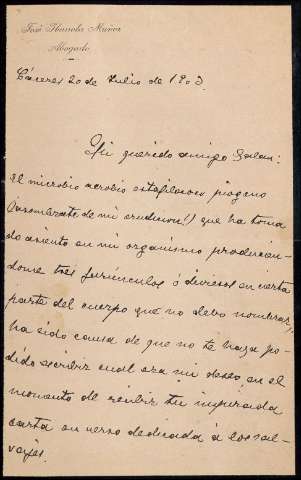 José Ibarrola Muñoz
Abogado
Cáceres 20 de Julio de 1903.
Mi querido amigo Galan:
El microbio aerobio estafilococo piogeno
(¡asombrate de mi erudicion!) que ha toma
do asiento en mi organismo producien-
dome tres furúnculos ó diviesos en cierta
parte del cuerpo que no debo nombrar,
ha sido causa de que no te haya po-
dido escribir cual era mi deseo, en el
momento de recibir tu inspirada
carta en verso dedicada á los sal-
vajes.